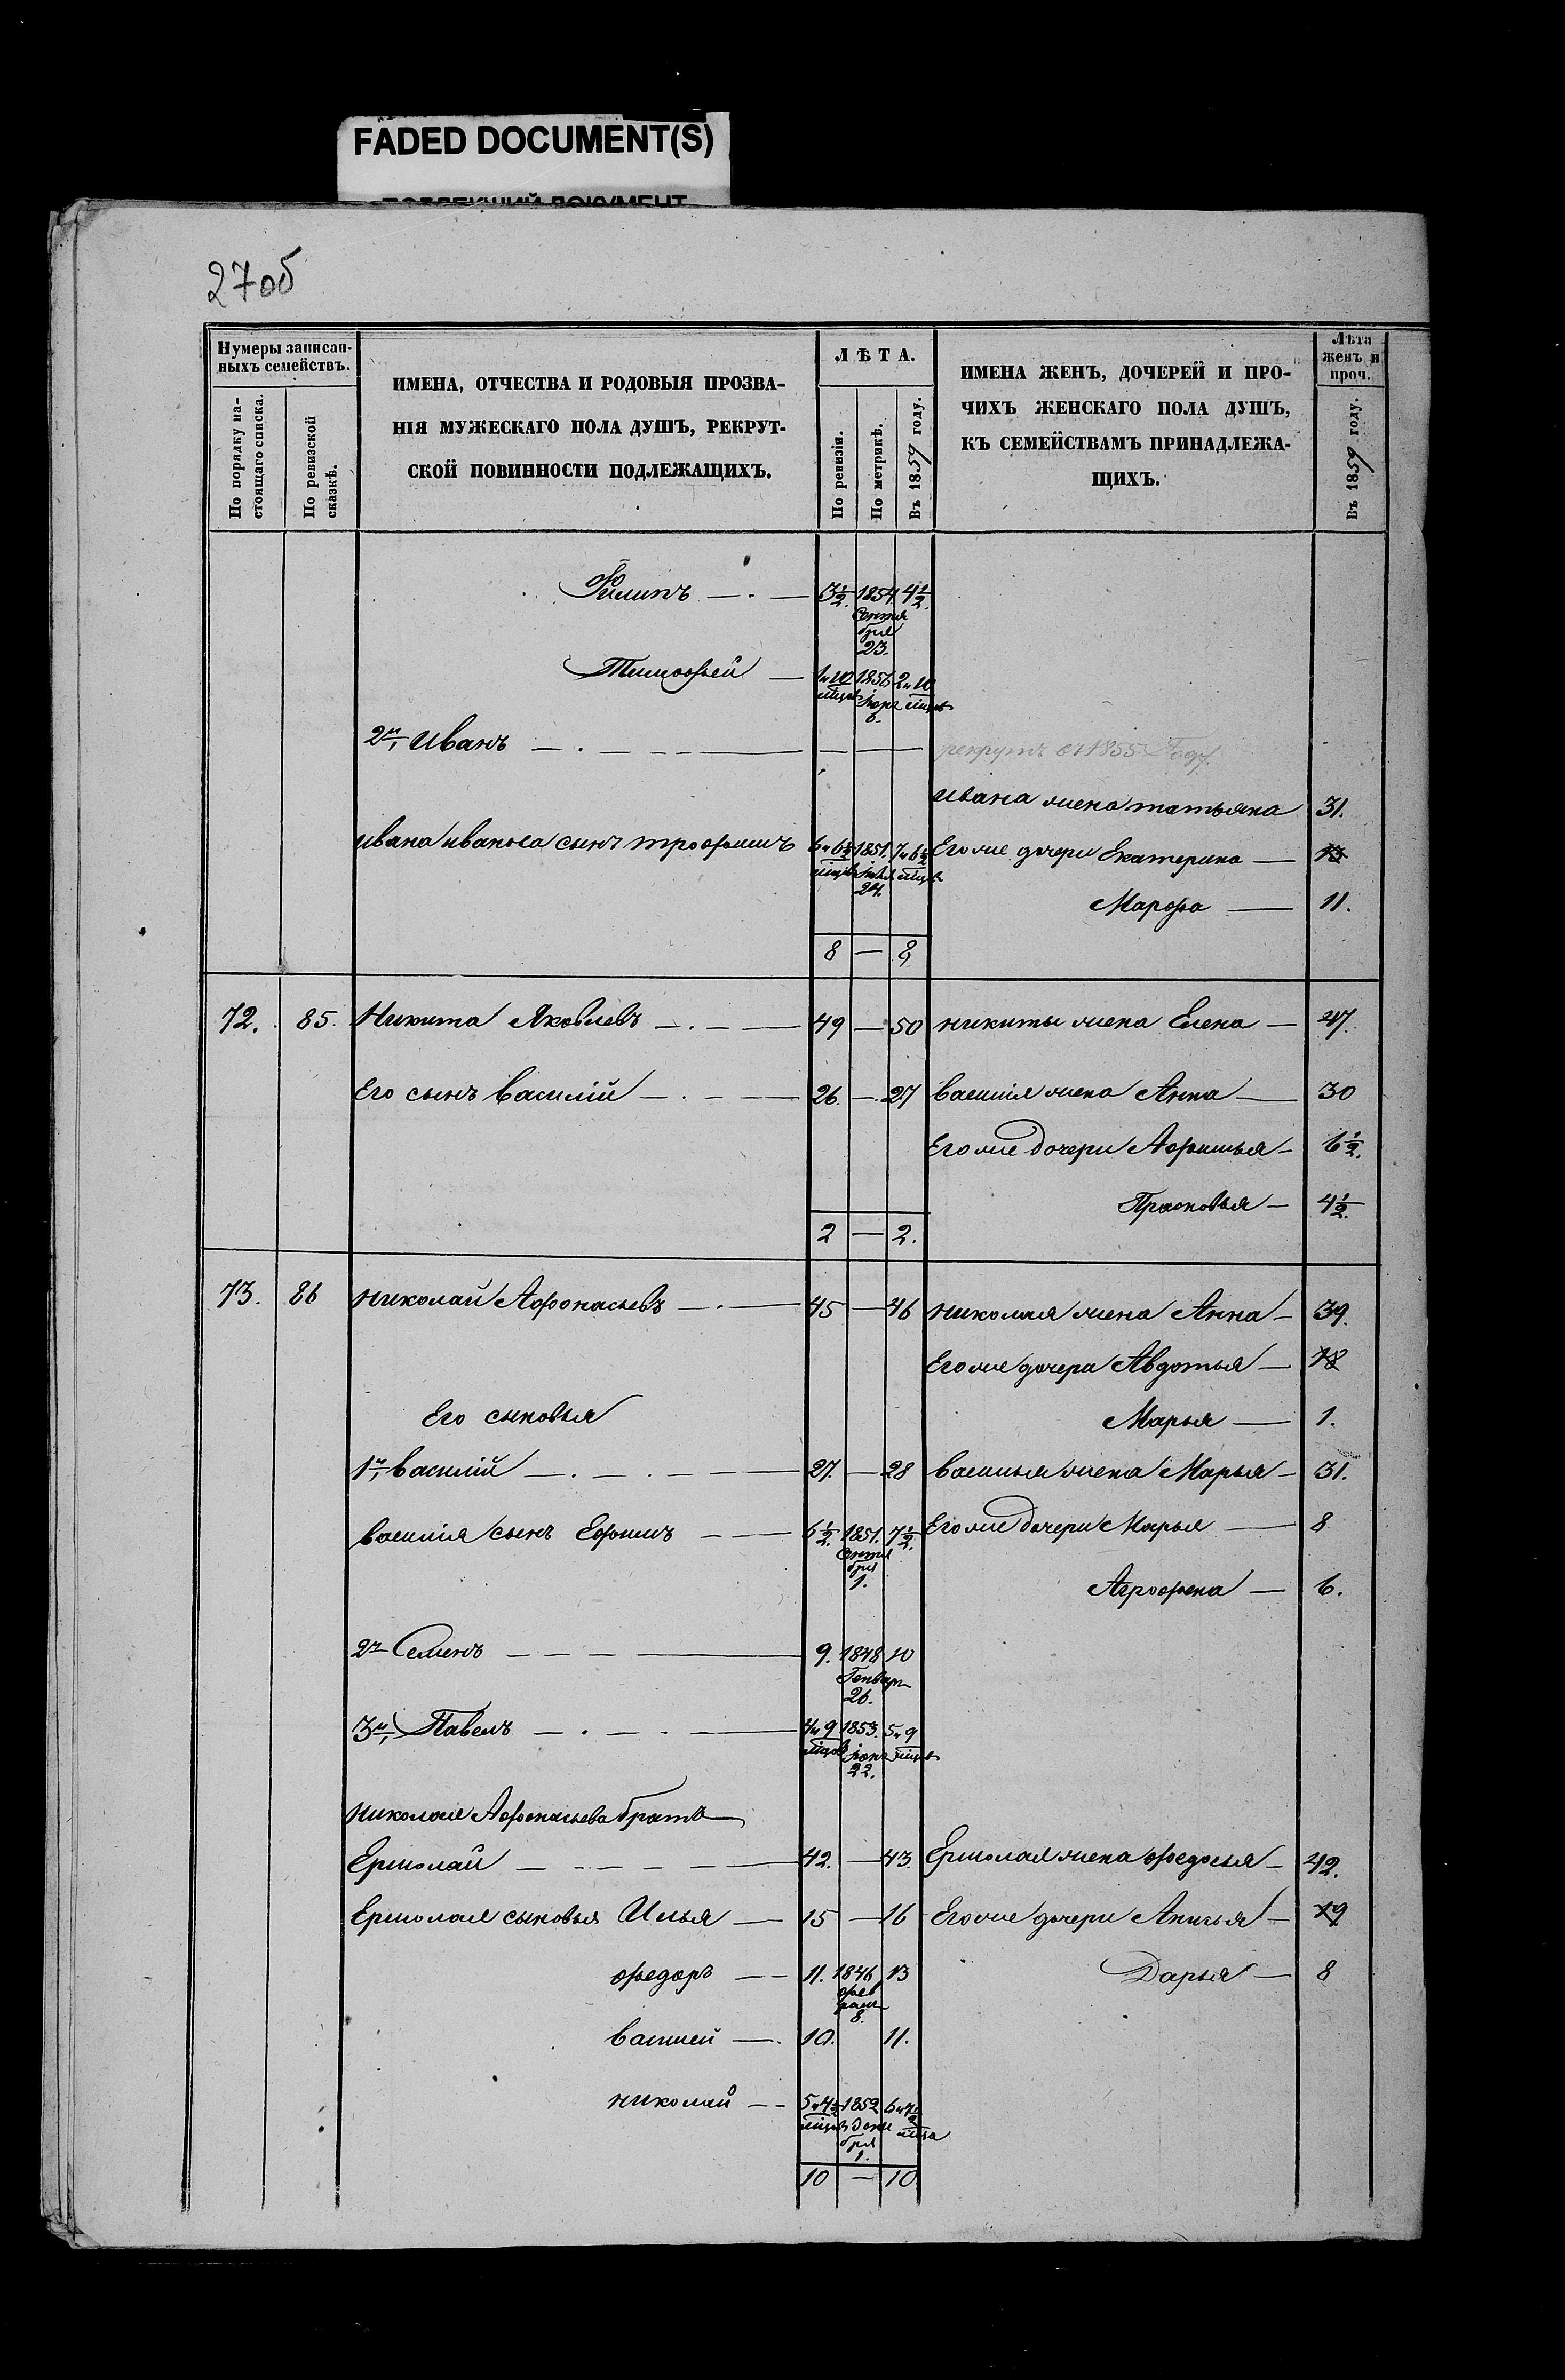 FADED DOCUMENT(S)
27об
Нумеры записан-
ныхъ семействъ.
По порядку на-
стоящаго списка.
По ревизской
сказкѣ.
ИМЕНА, ОТЧЕСТВА И РОДОВЫЯ ПРОЗВА-
НІЯ МУЖЕСКАГО ПОЛА ДУШЪ, РЕКРУТ-
СКОЙ ПОВИННОСТИ ПОДЛЕЖАЩИХЪ.
ЛѢТА.
По ревизіи.
По метрикѣ.
Въ 1859 году.
ИМЕНА ЖЕНЪ, ДОЧЕРЕЙ И ПРО-
ЧИХЪ ЖЕНСКАГО ПОЛА ДУШЪ,
КЪ СЕМЕЙСТВАМЪ ПРИНАДЛЕЖА-
ЩИХЪ.
Лѣта
женъ и
проч.
Въ 1859 году.
Филипъ — . — 3½. 1854. 4½.
Сентя
бря
23.
Тимофей — 1 и 10 1856 2 и 10
мѣцов Іюня мѣцов
6.
2й, Иванъ — . — — — — — рекрутъ въ 1855 Году.
Ивана жена татьяна 31.
Ивана иванова сынъ трофимъ 6 и 6½ 1851. 7 и 6½ Его же дочери Екатерина — 13
мѣцов Іюля мѣцов
24.
Марфа — 11.
8 — 8
72. 85. Никита Яковлевъ — . — — 49 — 50 никиты жена Елена — 47.
Его сынъ Василій — . — — 26. — 27 василія жена Анна — 30
Его же дочери Афимья — 6½.
Прасковья — 4½.
2 — 2.
73. 86 николай Афонасьевъ — . — 45 — 46 николая жена Анна — 39.
Его же дочери Авдотья — 18
Его сыновья Марья — 1.
1й, василій — . — . — — — 27. — 28 василья жена Марья — 31.
василія сынъ Ефимъ — — 6½. 1851. 7½. Его же дочери Марья — 8
Сентя
бря
1.
Агрофена — 6.
2й Семенъ — — — — 9. 1848 10
Генвар
26.
3й, Павелъ — . — . — 4 и 9 1853. 5 и 9
мѣцов Іюня мѣцов
22.
николая Афонасьева братъ
Ермолай — — — — — 42. — 43. Ермолая жена федосья — 42.
Ермолая сыновья Илья — 15 — 16 Его же дочери Анисья — 19
федоръ — — 11. 1846 13 Дарья — 8
фев
рал
8.
василей — . 10. 11.
николай — — 5 и 4½ 1852 6 и 4½
мѣцов дека мѣца
бря
1.
10 — 10